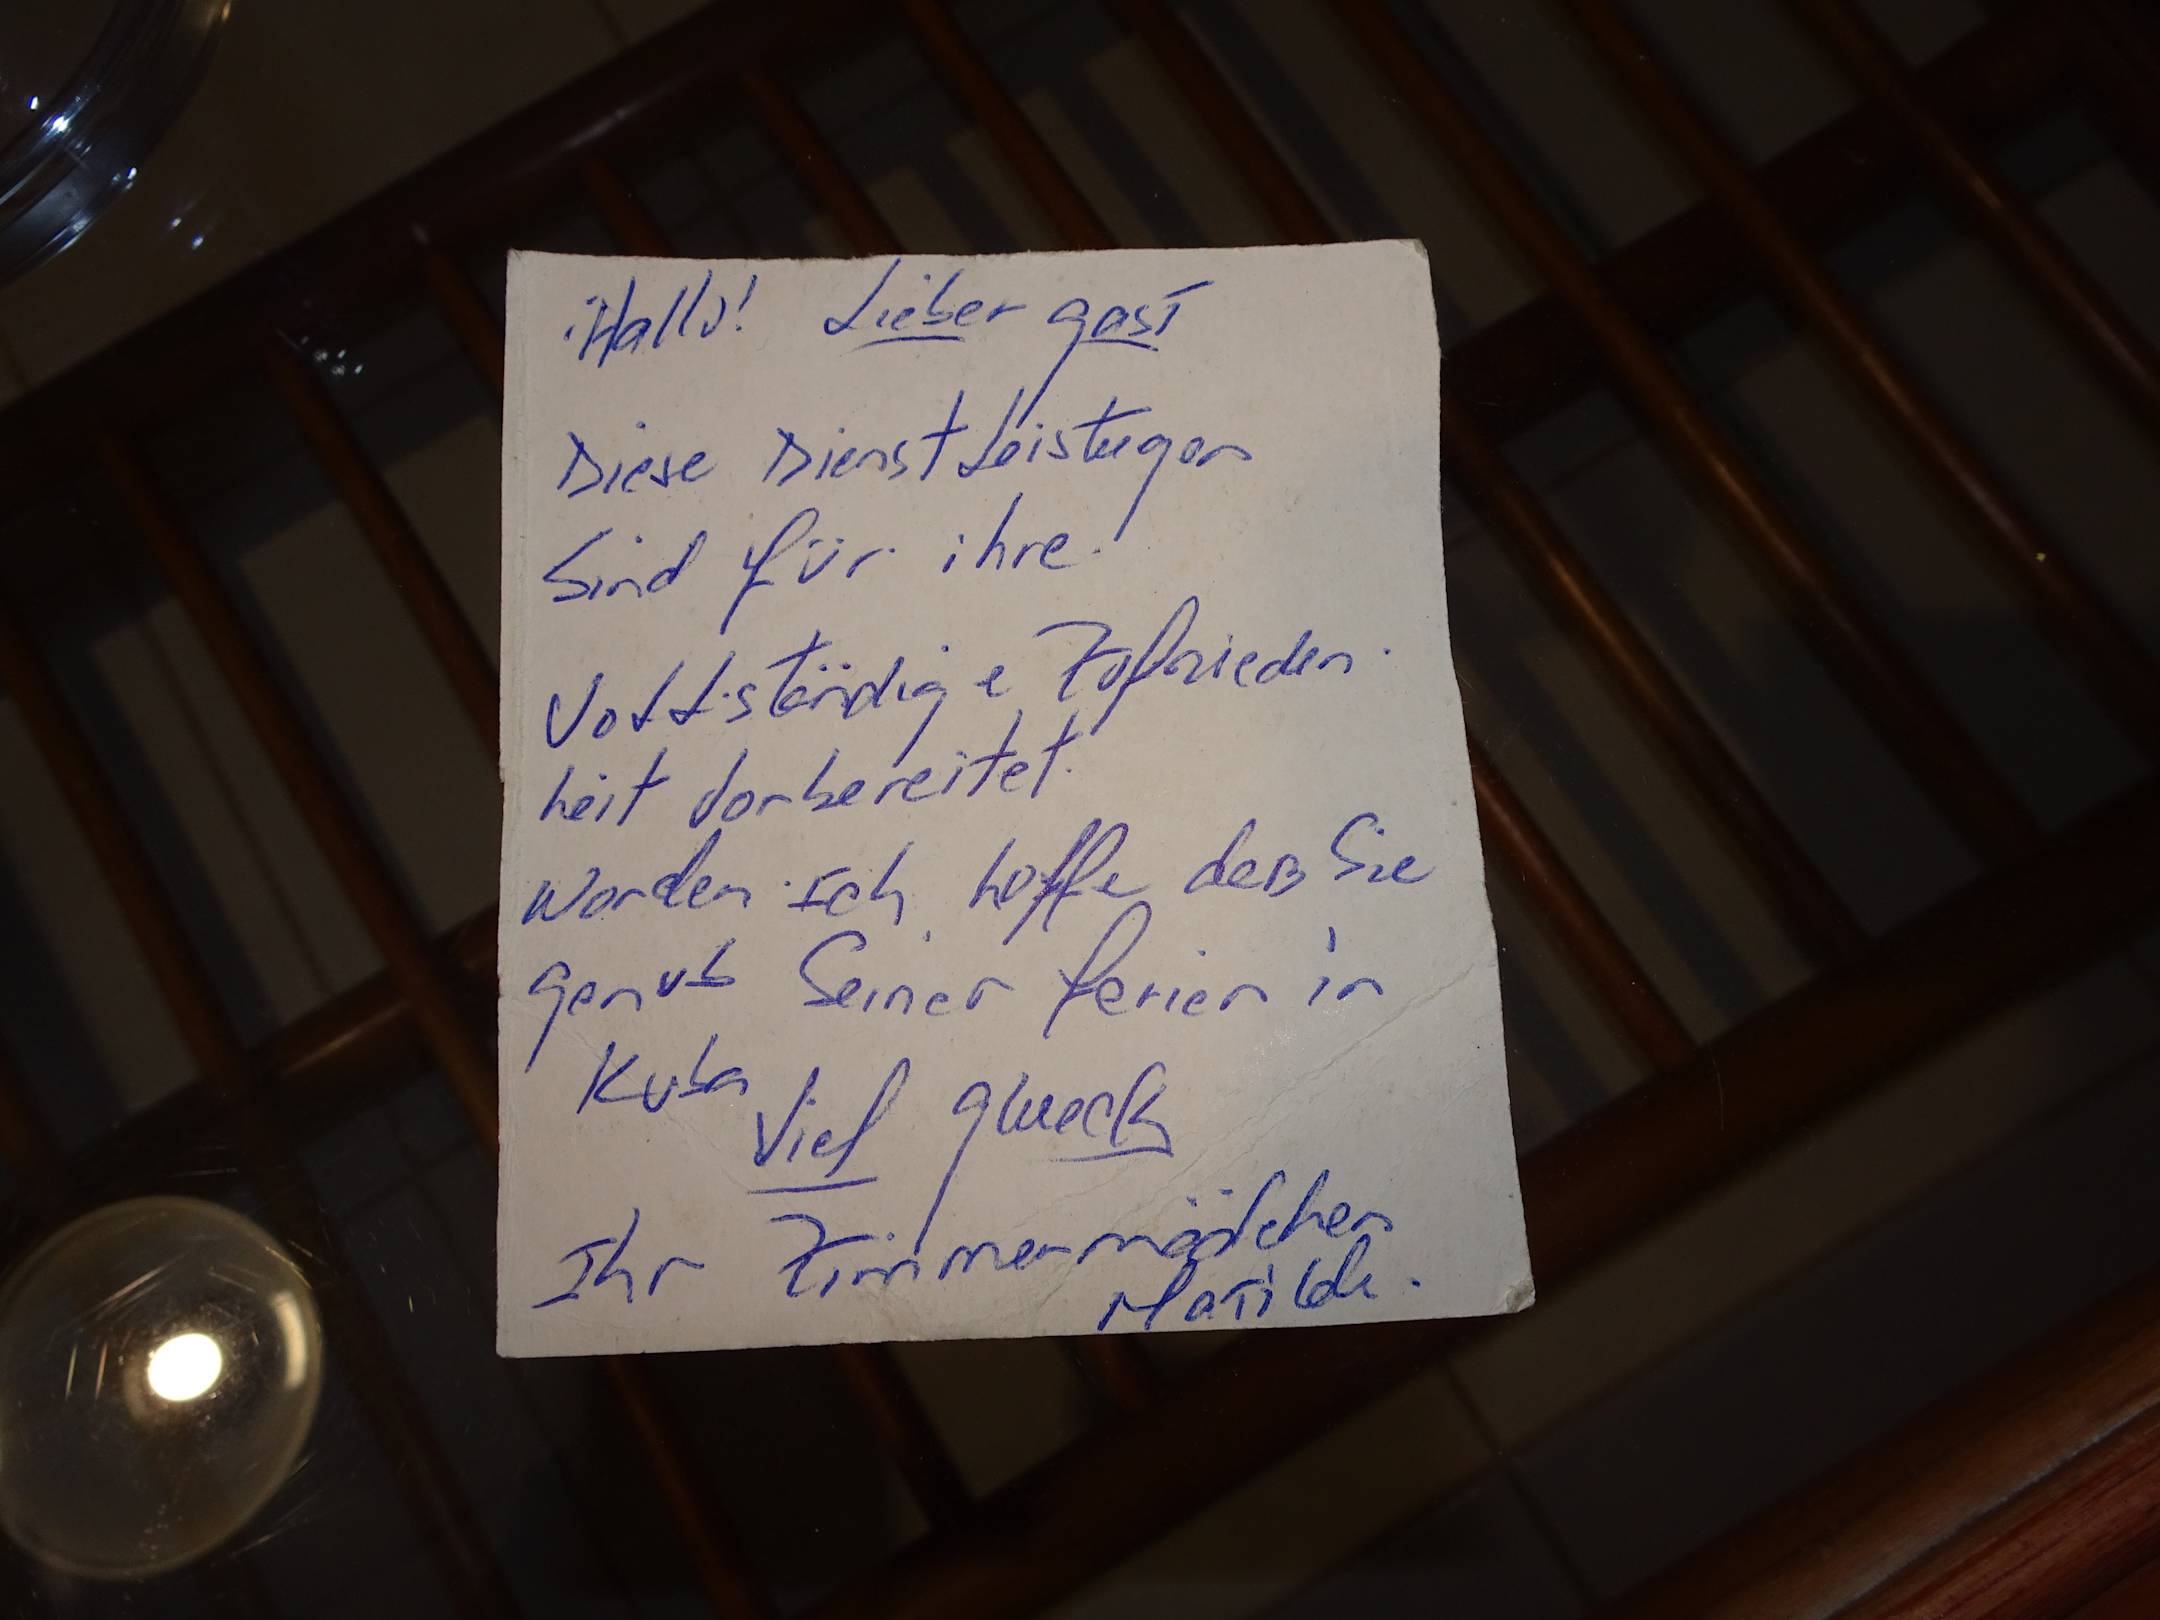 ¡Hallo! Lieber gast
Diese Dienstleistugen
Sind für ihre
Vollständige Zufrieden
heit vorbereitet
worden. Ich hoffe daß Sie
genuß Seiner ferien in
Kuba
Viel glueck
Ihr Zimmermädchen
Matilde.